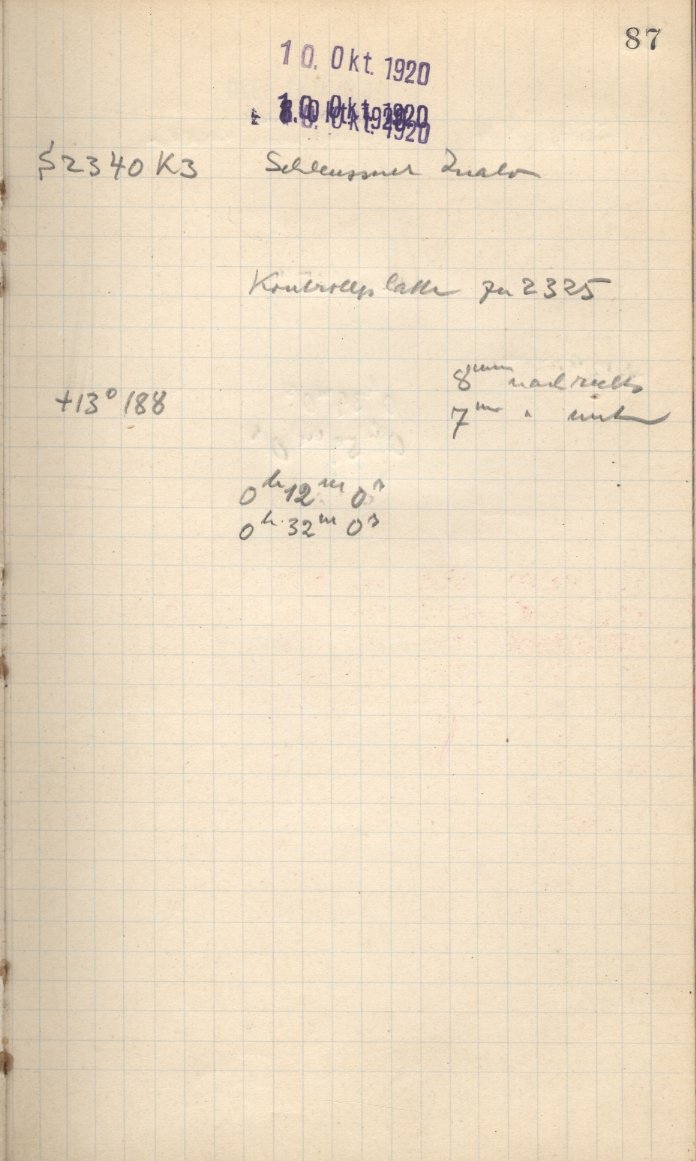 87
10. Okt. 1920
10. Okt. 1920
S2340 K3 Schleussner
Kontrollplatte zu 2325
8mm nach rechts
+13° 188
7mm " unten
0h 12m 0s
0h 32m 0s